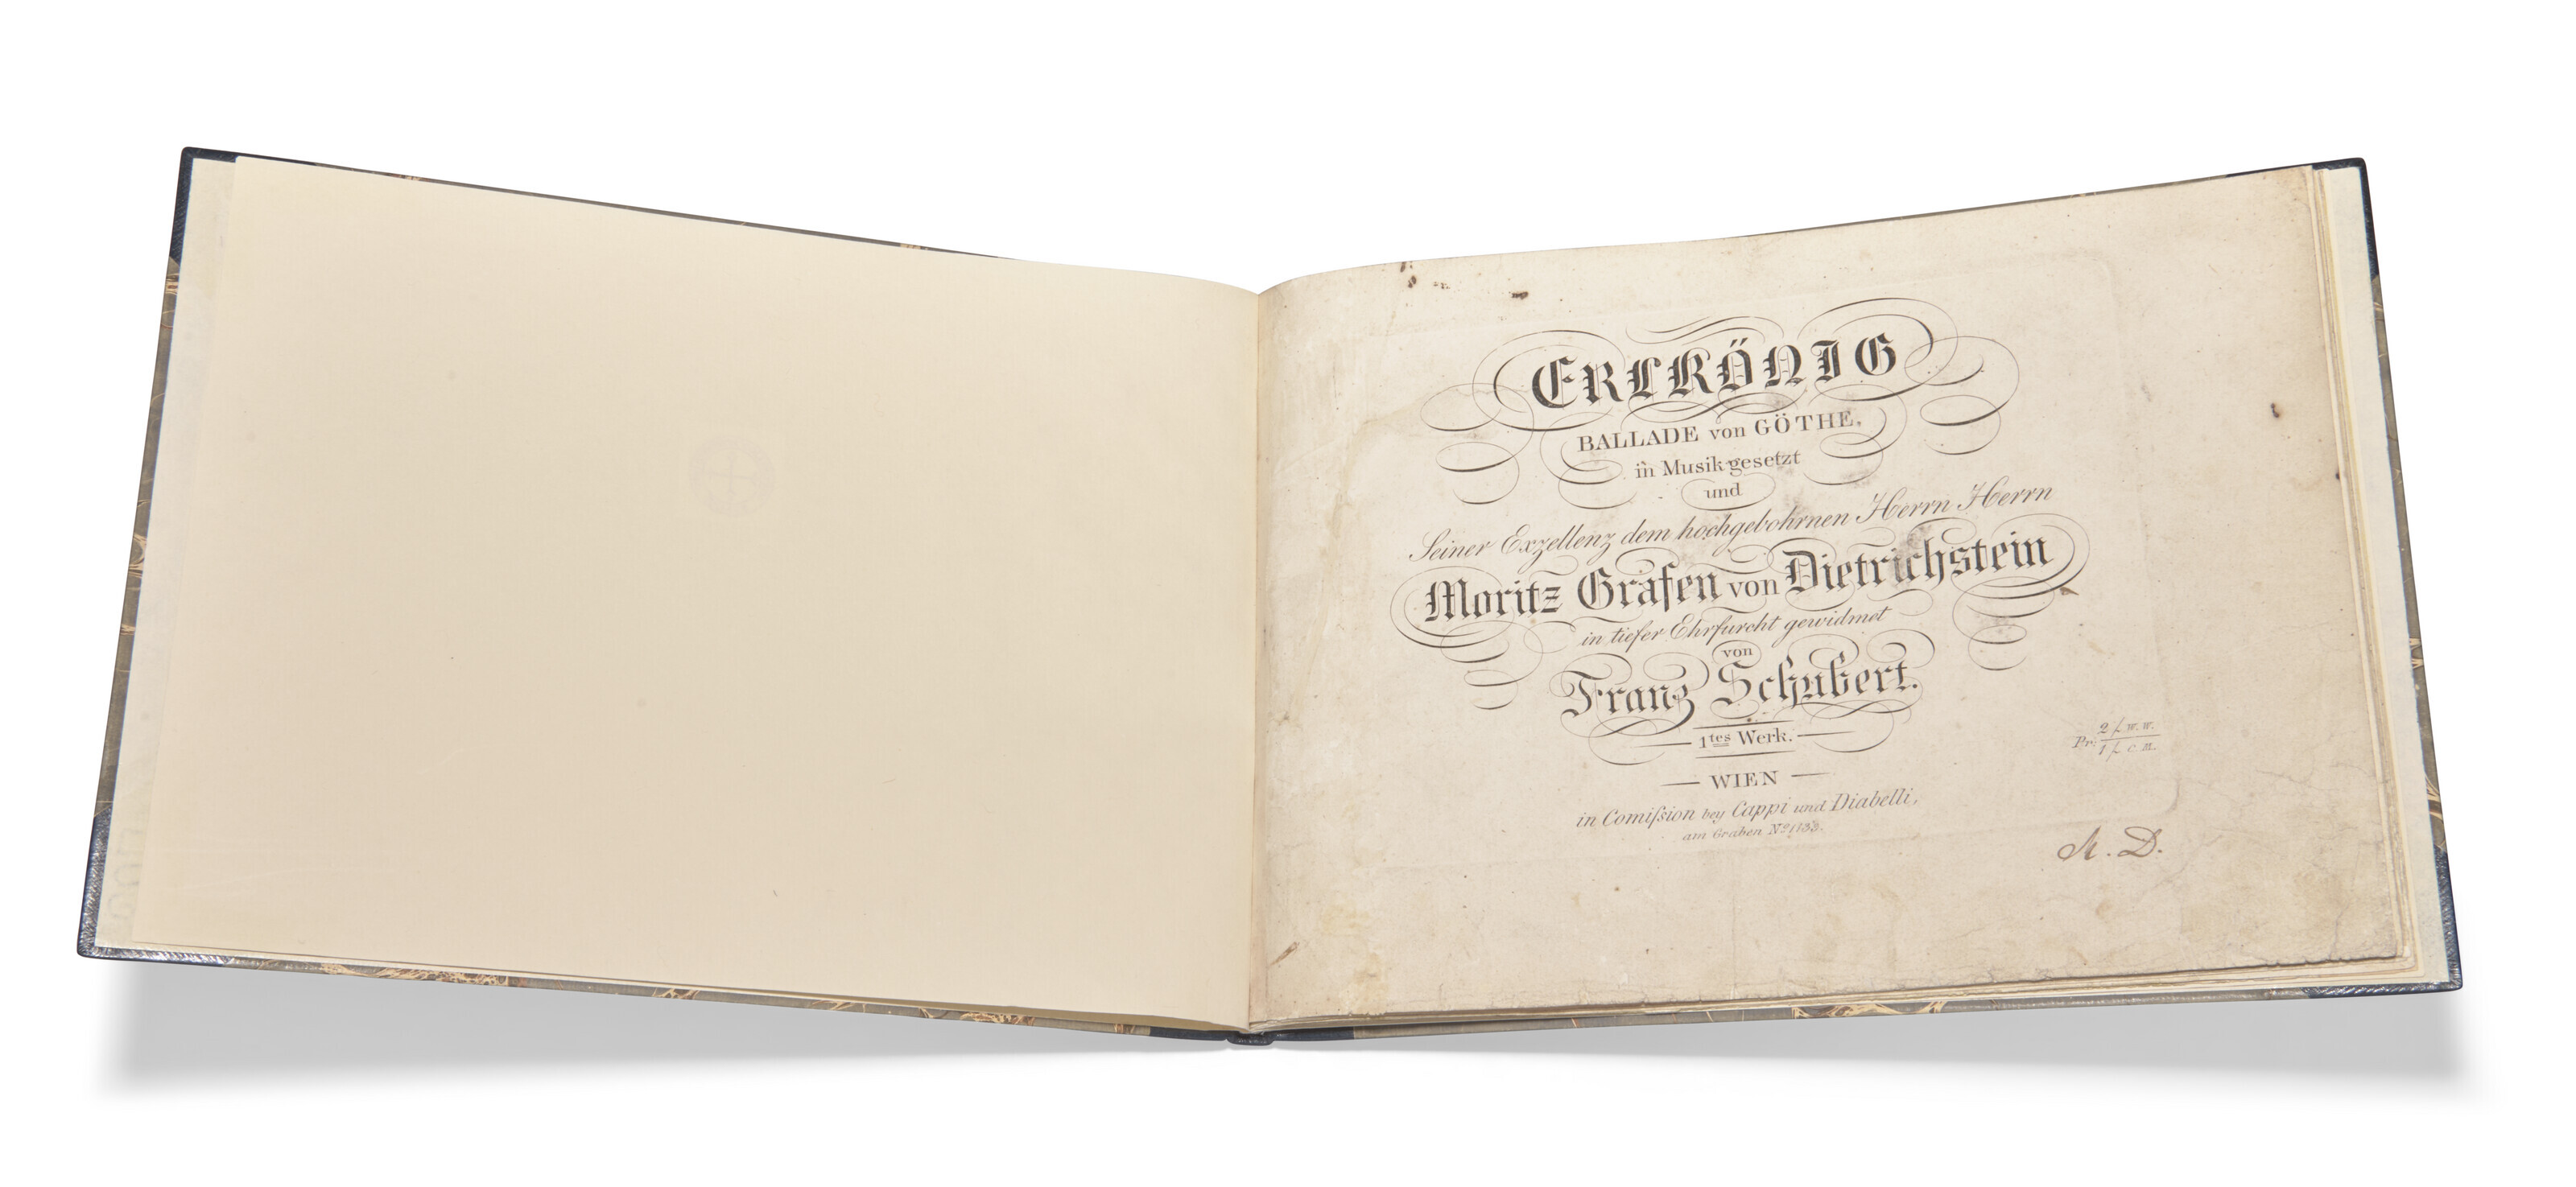 ERLKÖNIG
BALLADE von GÖTHE,
in Musik gesetzt
und
Seiner Exzellenz dem hochgebohrnen Herrn Herrn
Moritz Grafen von Dietrichstein
in tiefer Ehrfurcht gewidmet
von
Franz Schubert.
1tes Werk.
WIEN
in Comißion bey Cappi und Diabelli,
am Graben No 1133.
Pr: 2 f. W. W.
1 f. C. M.